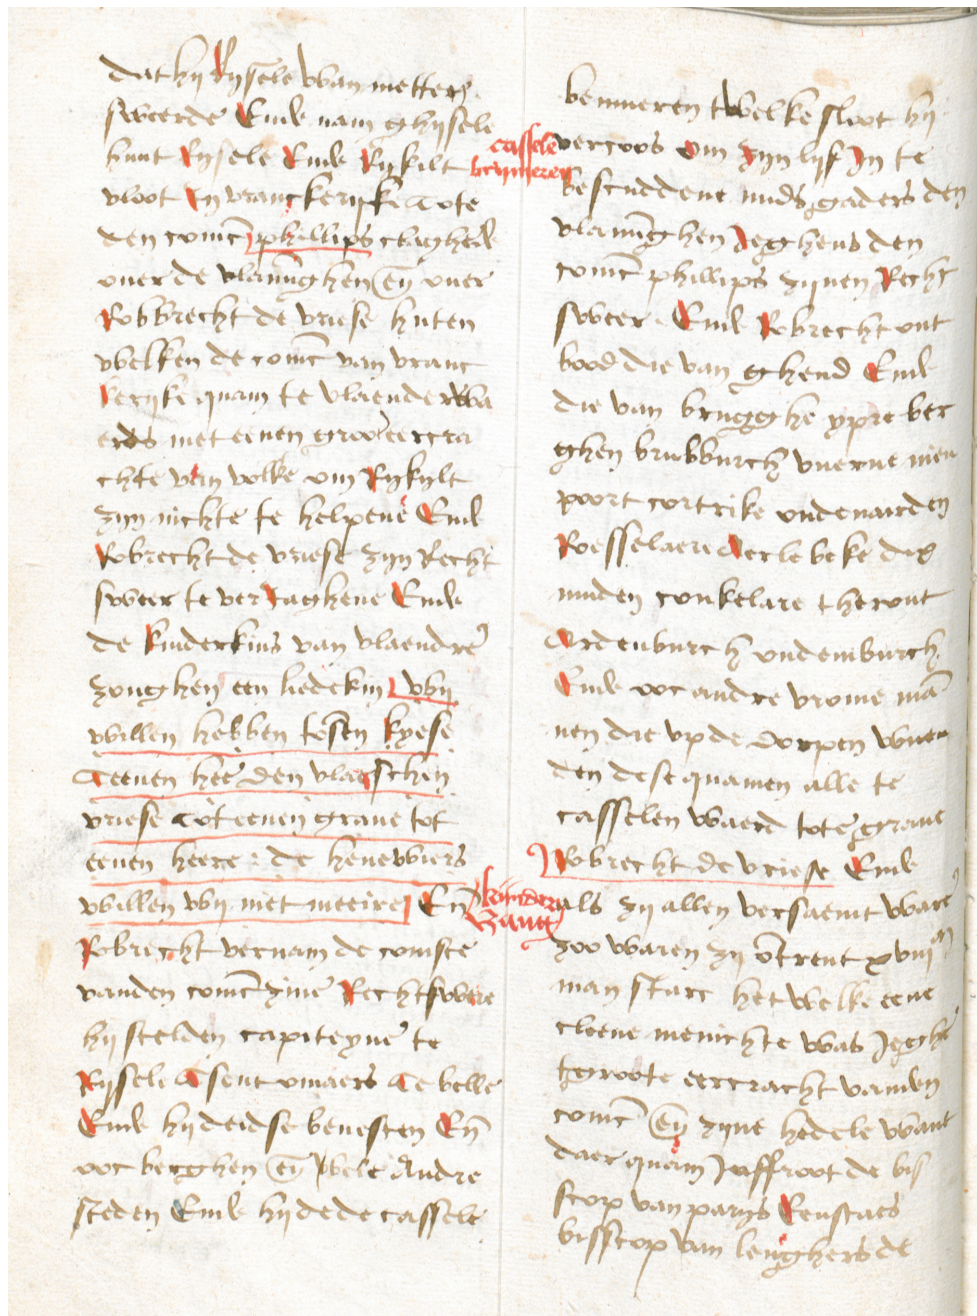 dat hij Rijsele wan metten
sweerde Ende nam ghijsele
huut Rijsele Ende Rijkilt
vloot In vranckerijke Tote
den coninc phillips claghede
over de vlaminghen en over
Robbrecht de vriese huten
welken de coninc van vranc
kerijke quam te vlaender wa
erds met eenen groote eercra
chte van volke om Rijkijlt
zijn nichte te helpene Ende
Robrecht de vriese zijn Recht
sweer te verJaghene Ende
de kinderkins van vlaendre
zonghen een liedekin wij
willen hebben tesen kyese
Teenen hee den vlaeschen
vriese Tot eenen grave tot
eenen heere : de henewiers
willen wij niet meere En
Robrecht vernam de comste
vanden coninc zine Rechtswere
hij stelden capiteyne te
Rijsele Tsent omaers Te belle
Ende hij deidse bevesten En
ooc berghen en vele Andre
steden Ende hij dede cassele
cassele
bemueren
bemueren twelke sloot hij
vercoos om zijn lijf In te
bescuddene mids gaders den
vlaminghen Jeghens den
coninc phillips zijnen Recht
sweer . Ende Robrecht ont
bood die van ghend Ende
die van brugghe ypre ber
ghen brubburch vuerne nieu
poort cortrike oudenaerden
Roesselaere Aerlebeke dix
muden coukelare thorout
Ardenburch oudemburch
Ende ooc andre vrome man
nen die up de dorpen wuen
den dese quamen alle te
casselen waerd tote grave
Robrecht de vriese Ende
kinderen
zanc
als zij allen versaemt ware
zoo waren zij omtrent xviij
man starc het welke eene
cleene menichte was Jeghe
tgroote eercracht vanden
coninc en zijne hedele want
daer quam Jaffroot de bis
scop van parijs Eenstaes
bisscop van leughers de